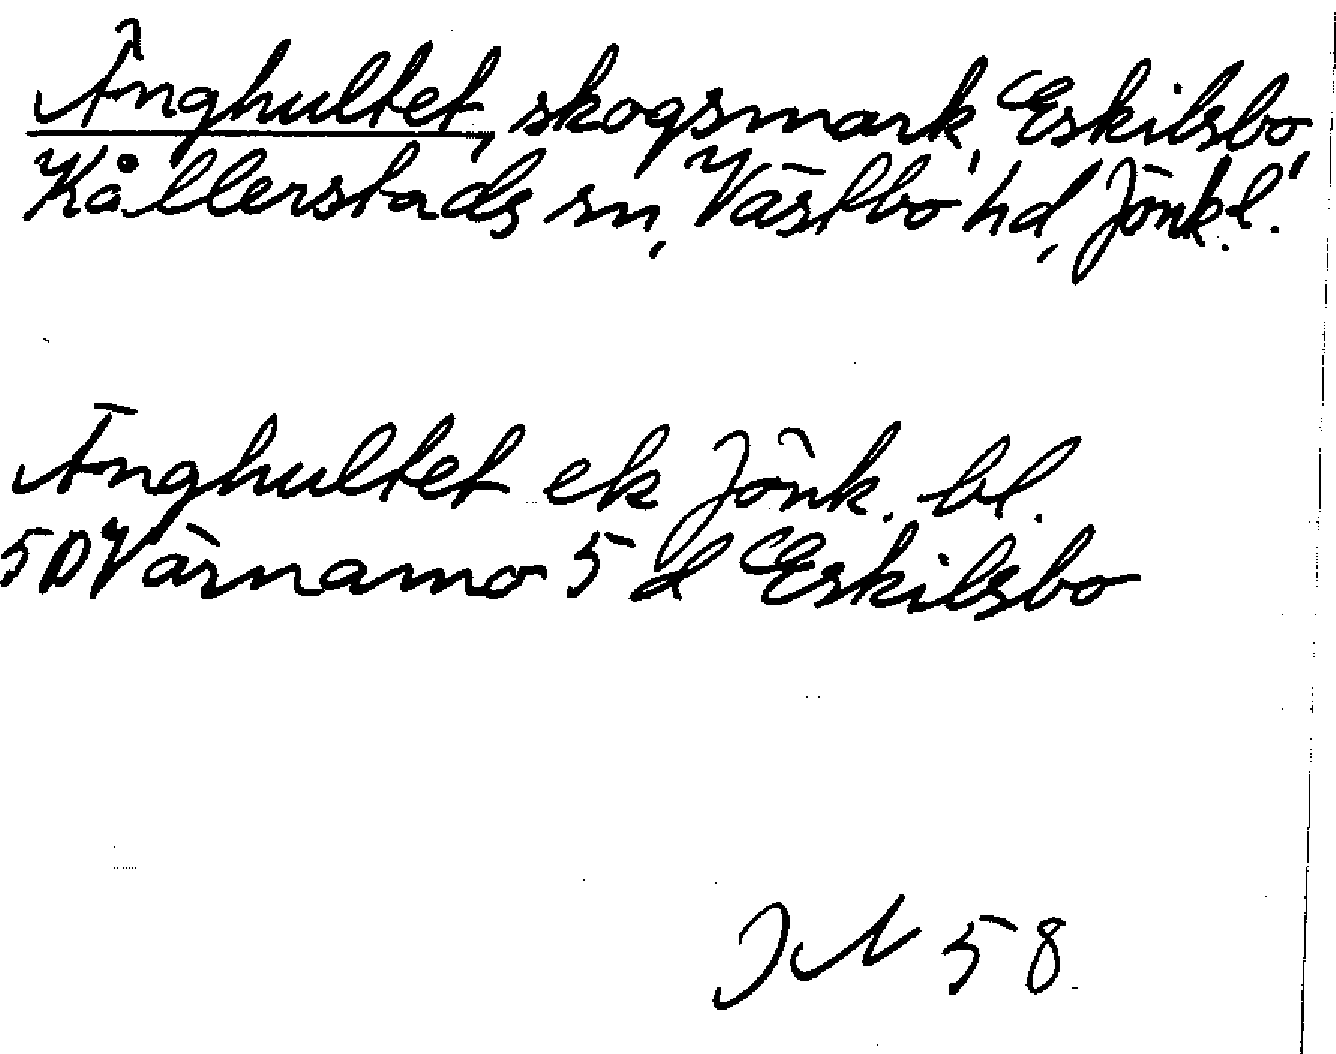 Änghultet, skogsmark, Eskilsbo,
Kållerstads sn, Västbo hd, Jönk.l.
Änghultet ek Jönk. bl.
5D Värnamo 5 d Eskilsbo
IN 58